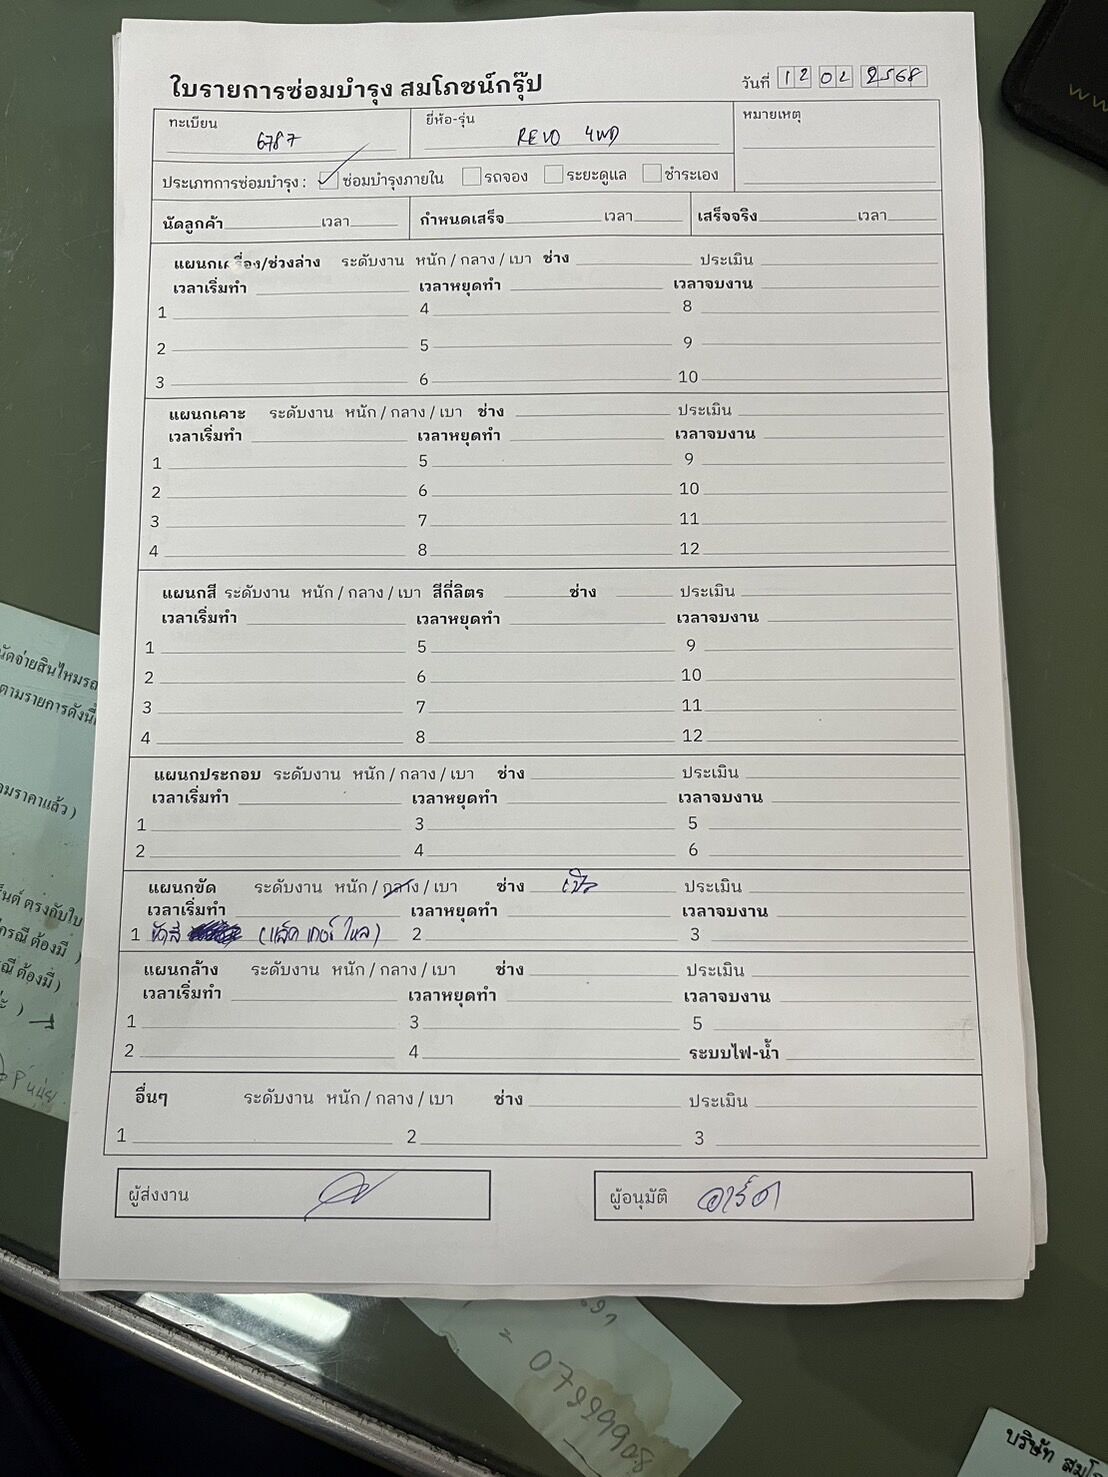 ใบรายการซ่อมบำรุง สมโภชน์กรุ๊ป
วันที่ 12 02 2568
ทะเบียน 6787
ยี่ห้อ-รุ่น REVO 4WD
หมายเหตุ
ประเภทการซ่อมบำรุง : ซ่อมบำรุงภายใน รถจอง ระยะดูแล ชำระเอง
นัดลูกค้า เวลา กำหนดเสร็จ เวลา เสร็จจริง เวลา
แผนกเครื่อง/ช่วงล่าง ระดับงาน หนัก / กลาง / เบา ช่าง ประเมิน
เวลาเริ่มทำ เวลาหยุดทำ เวลาจบงาน
1 4 8
2 5 9
3 6 10
แผนกเคาะ ระดับงาน หนัก / กลาง / เบา ช่าง ประเมิน
เวลาเริ่มทำ เวลาหยุดทำ เวลาจบงาน
1 5 9
2 6 10
3 7 11
4 8 12
แผนกสี ระดับงาน หนัก / กลาง / เบา สีกี่ลิตร ช่าง ประเมิน
เวลาเริ่มทำ เวลาหยุดทำ เวลาจบงาน
1 5 9
2 6 10
3 7 11
4 8 12
แผนกประกอบ ระดับงาน หนัก / กลาง / เบา ช่าง ประเมิน
เวลาเริ่มทำ เวลาหยุดทำ เวลาจบงาน
1 3 5
2 4 6
แผนกขัด ระดับงาน หนัก / กลาง / เบา ช่าง ประเมิน
เวลาเริ่มทำ เวลาหยุดทำ เวลาจบงาน
1 ขัดสี (แล็คเกอร์ไหล) 2 3
แผนกล้าง ระดับงาน หนัก / กลาง / เบา ช่าง ประเมิน
เวลาเริ่มทำ เวลาหยุดทำ เวลาจบงาน
1 3 5
2 4 ระบบไฟ-น้ำ
อื่นๆ ระดับงาน หนัก / กลาง / เบา ช่าง ประเมิน
1 2 3
ผู้ส่งงาน
ผู้อนุมัติ อาร์ต
ตามรายการดังนี้
บริษัท